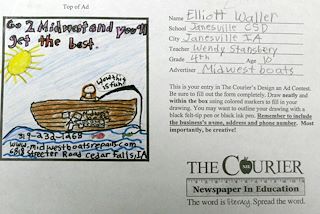 Top of Ad
Go 2 Midwest and you'll
get the best.
Wow this is fun!
319-232-1268
www.midwestboatrepair.com
6818 Streeter Road Cedar Falls, IA
Name Elliott Waller
School Janesville CSD
City Janesville IA
Teacher Wendy Stansbery
Grade 4th Age 10
Advertiser Midwest boats
This is your entry in The Courier's Design an Ad Contest.
Be sure to fill out the form completely. Draw neatly and
within the box using colored markers to fill in your
drawing. You may want to outline your drawing with a
black felt-tip pen or black ink pen. Remember to include
the business's name, address and phone number. Most
importantly, be creative!
THE COURIER
NIE
Newspaper In Education
The word is literacy. Spread the word.